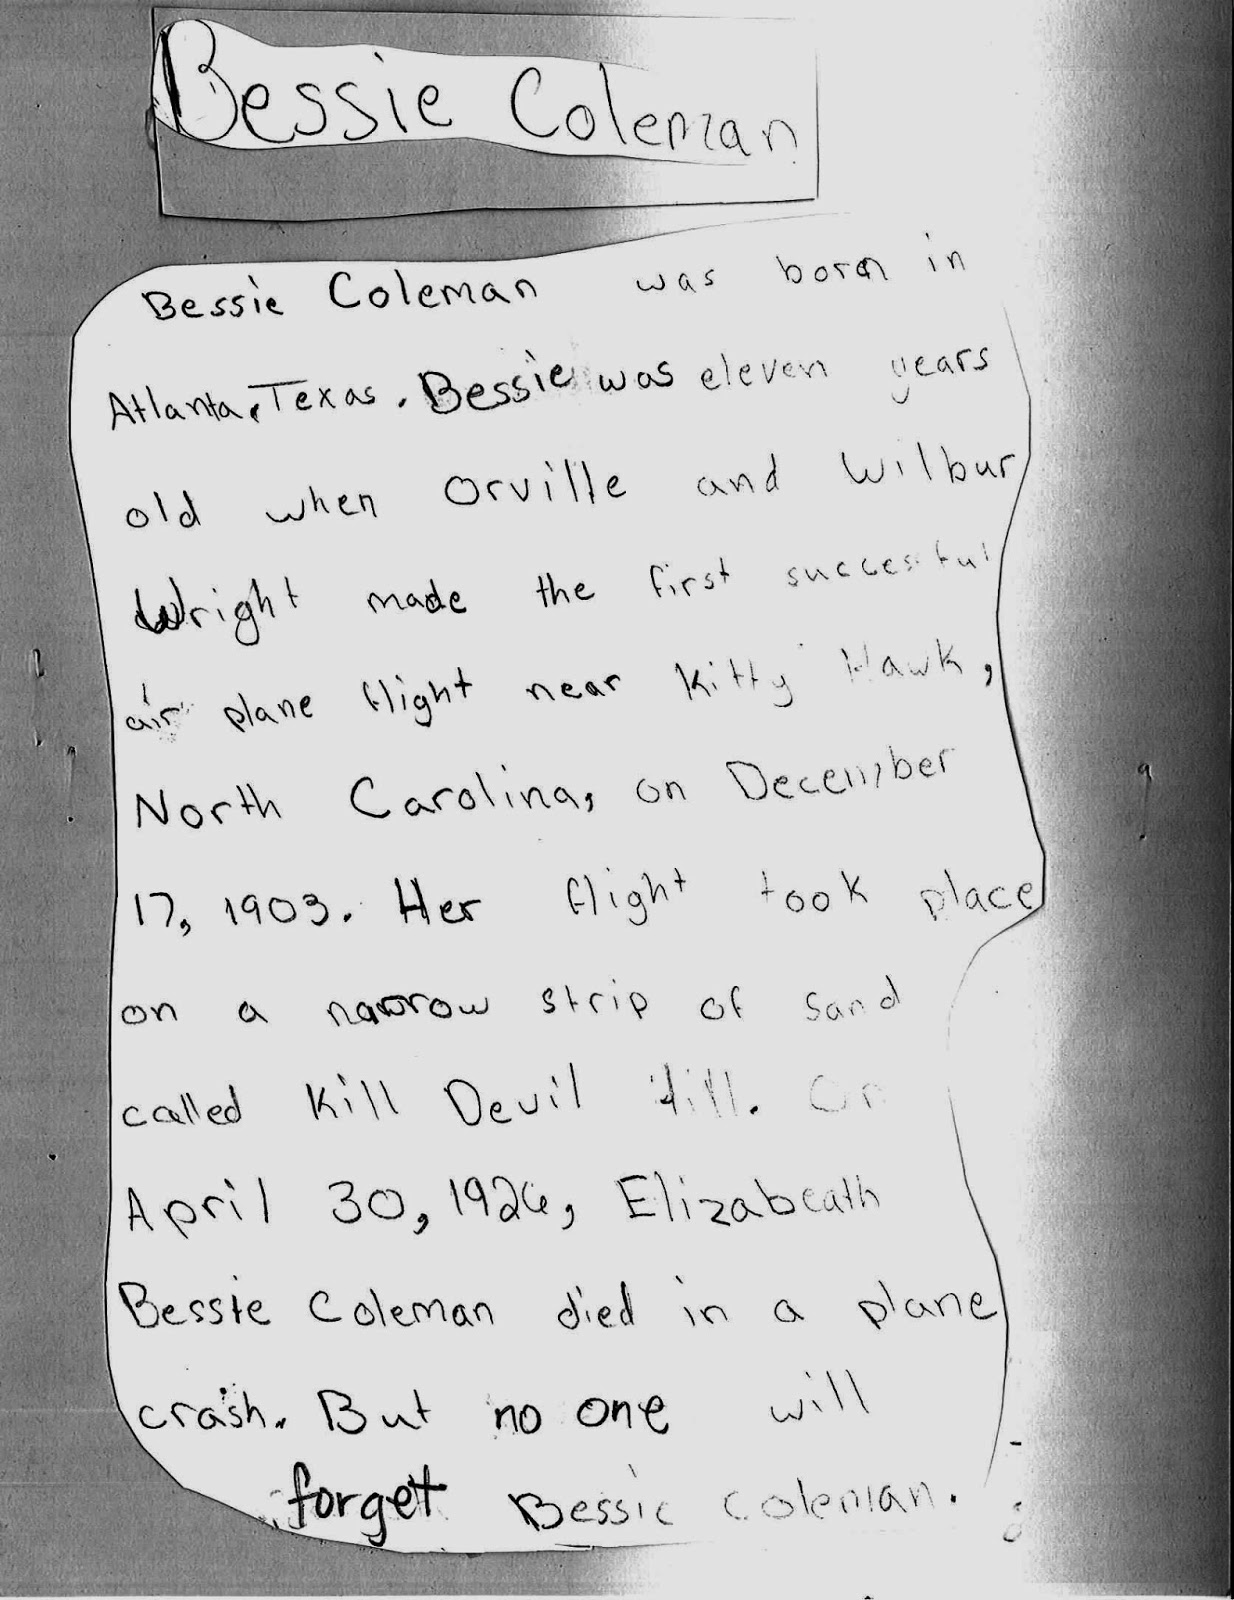 Bessie Coleman
Bessie Coleman was born in
Atlanta, Texas. Bessie was eleven years
old when Orville and Wilbur
Wright made the first successful
air plane flight near Kitty Hawk,
North Carolina, on December
17, 1903. Her flight took place
on a narrow strip of sand
called Kill Devil Hill. On
April 30, 1926, Elizabeath
Bessie Coleman died in a plane
crash. But no one will
forget Bessie Coleman.